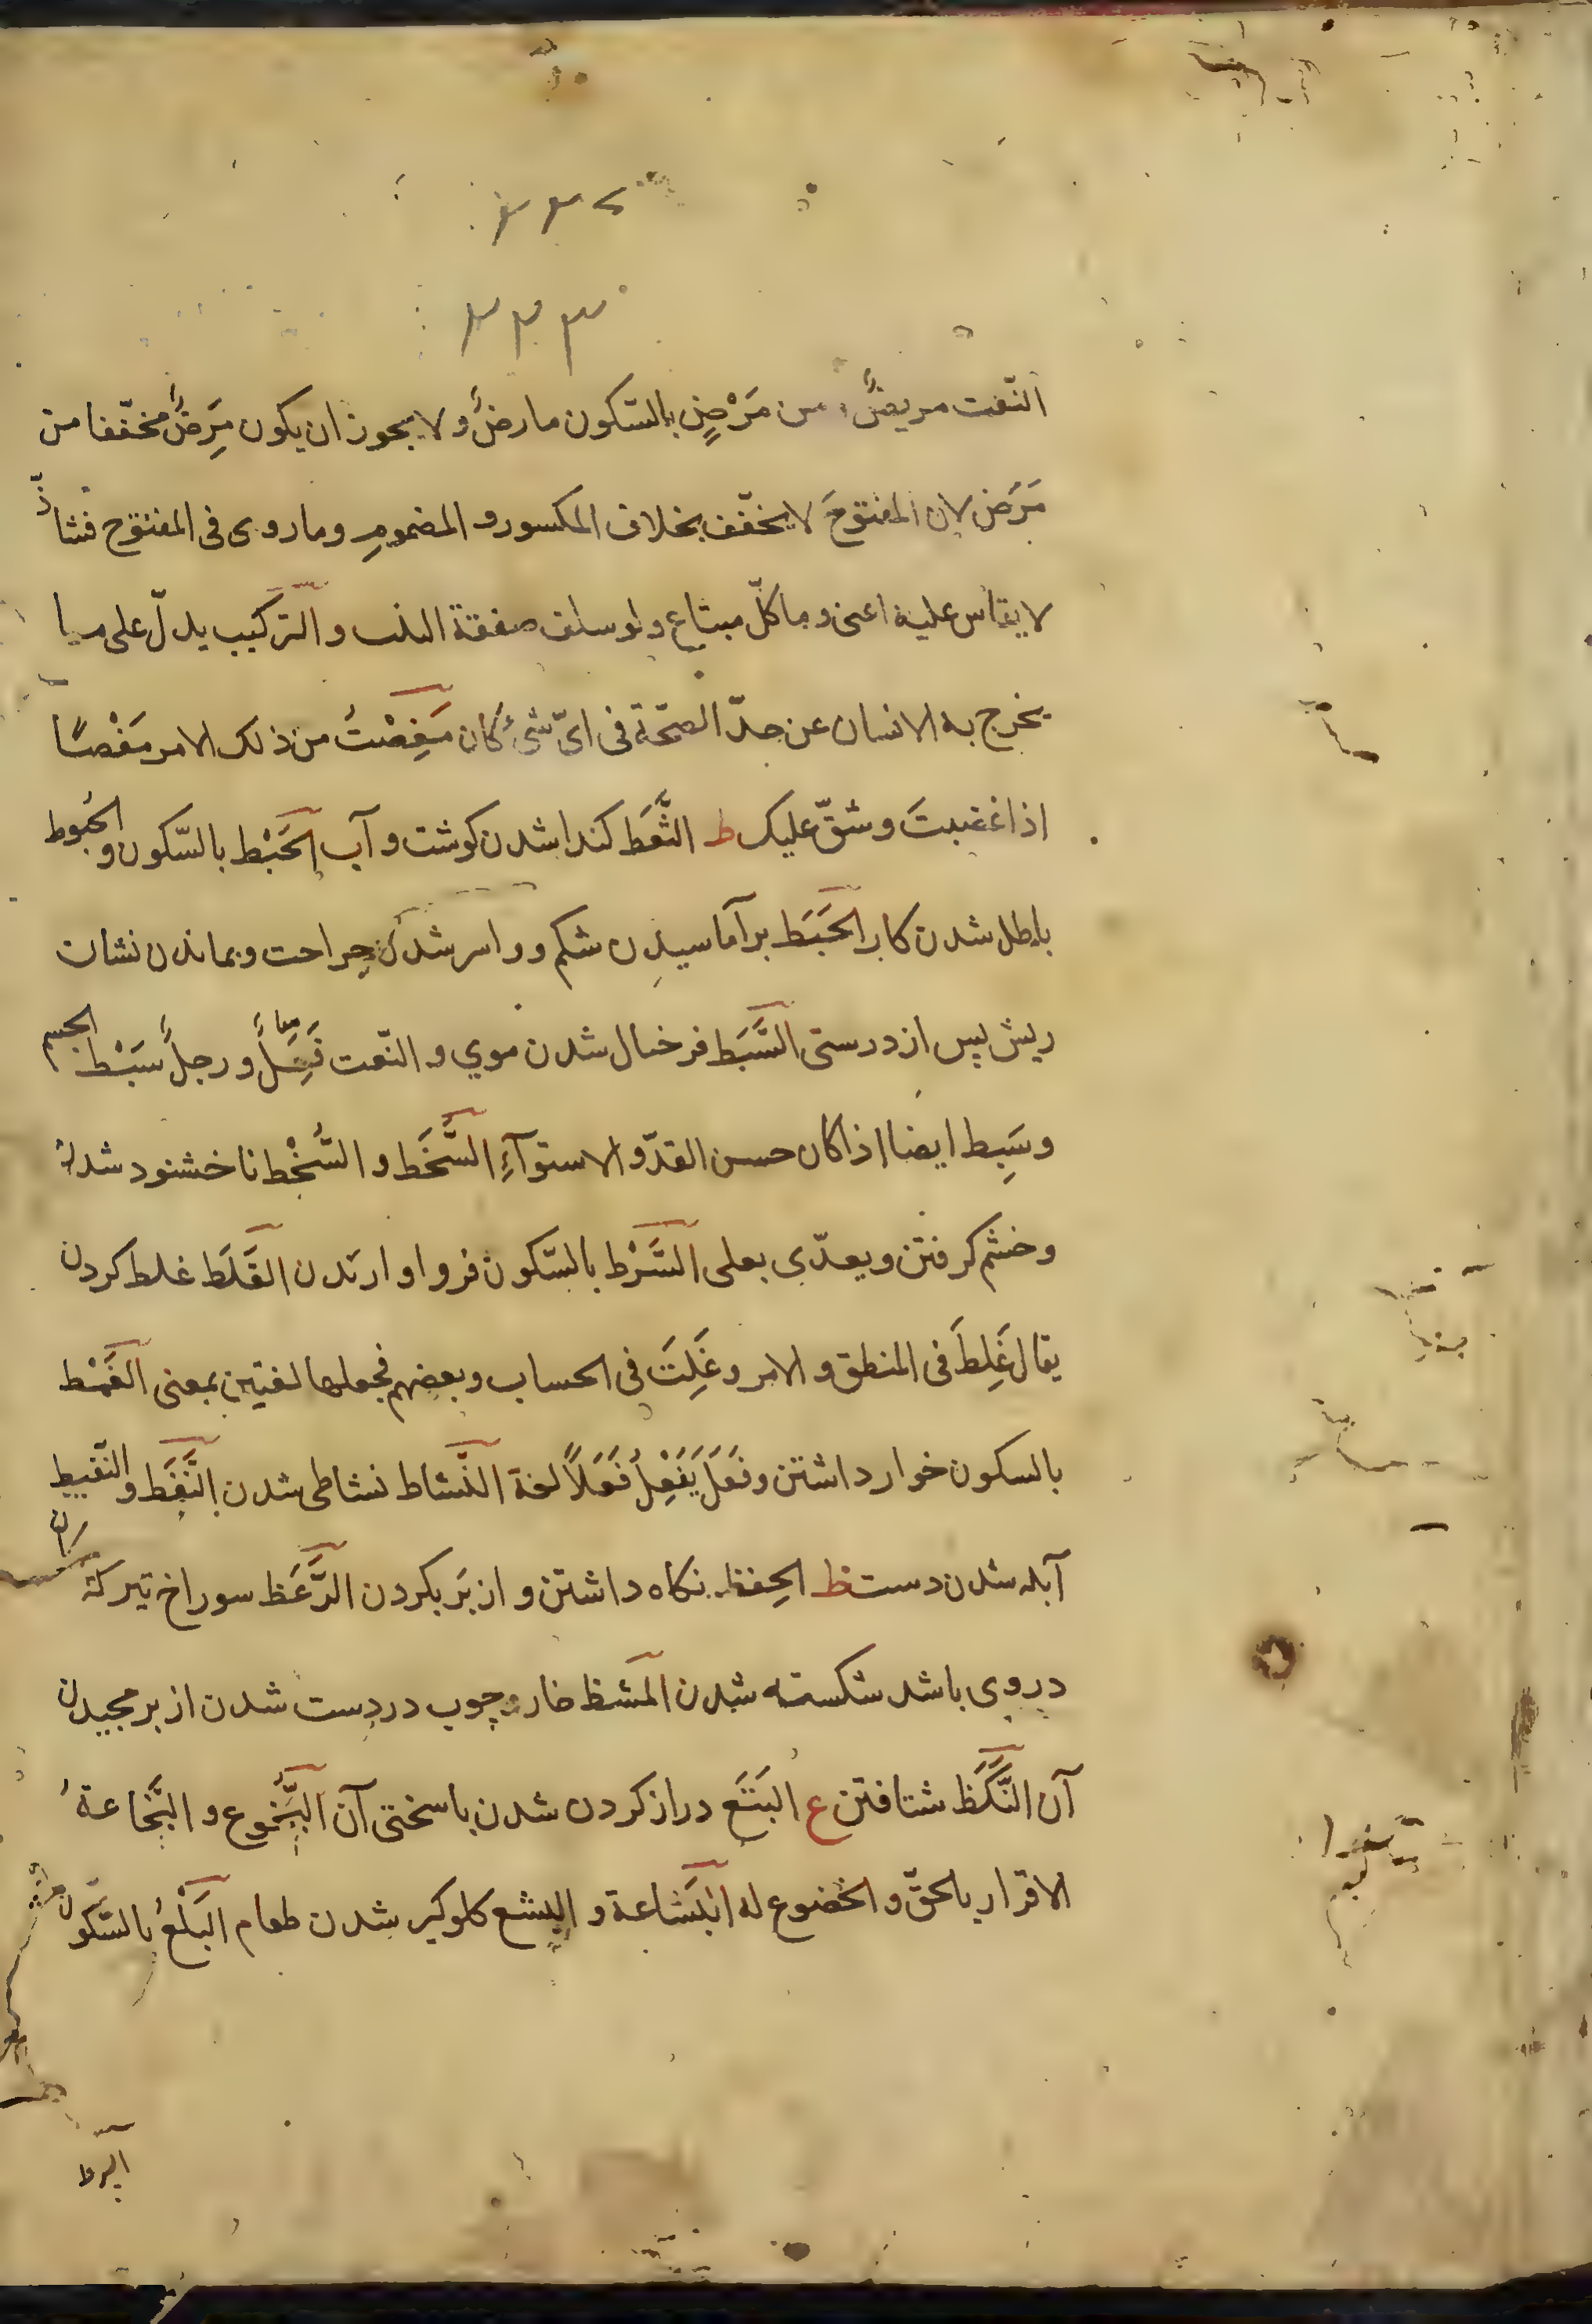 النّعت مريضٌ من مَرْضٍ بالسّكون مارضٌ و لا يجوز ان يكون مَرِضٌ مخفّفا من
مَرَض لان المفتوحَ لا يخفّف بخلاف المكسور و المضمومِ وما روى فى المفتوح فشاذّ
لا يقاس عليه اعنى و ما كلّ مبتاع ولو سلف صفقة و التركيب يدلّ على ما
يخرج به الانسان عن حدّ الصحّة فى اىّ شىء كان مَغِصْتُ من ذلك الامر مَغْصًا
اذا غضبتَ و شقّ عليك ط الثَّعَط كندا شدن كوشت و آب الحَبْط بالسّكون و الحُبوط
باطل شدن كار الحَبَط برآماسيدن شكم و واسر شدن جراحت و بماندن نشان
ريش پس از درستى السَّبَط فرخال شدن موي و النّعت فَعِلٌ و رجلٌ سَبْط الجسم
وسَبِط ايضا اذا كان حسن القدّ و الاستوآءِ السَّخَط و السُّخْط ناخشنود شدن
و خشم كرفتن و يعدّى بعلى السَّرْط بالسّكون فرو اواريدن الغَلَط غلط كردن
يقال غَلِطَ فى المنطق و الامر و غَلِتَ فى الحساب و بعضهم فجعلها لغتين بمعنى الغَمْط
بالسكون خوار داشتن و فَعَلَ يَفْعِلُ فَعَلاً لغة النَّشاط نشاطى شدن النَّفَط و النّفيط
آبله شدن دست ظ الحِفظ نكاه داشتن و از بَر بكردن الرَّعَظ سوراخ تير كه پيكان
در وى باشد شكسته شدن المَشَظ خار و چوب در دست شدن از برمجيدن
آن النَّكَظ شتافتن ع البَتَع دراز كردن شدن با سختى آن البُخُوع و البَخَاعةُ
الاقرار بالحقّ و الخضوع له البَشاعة و البشع كلوكير شدن طعام البَلْعُ بالسّكون